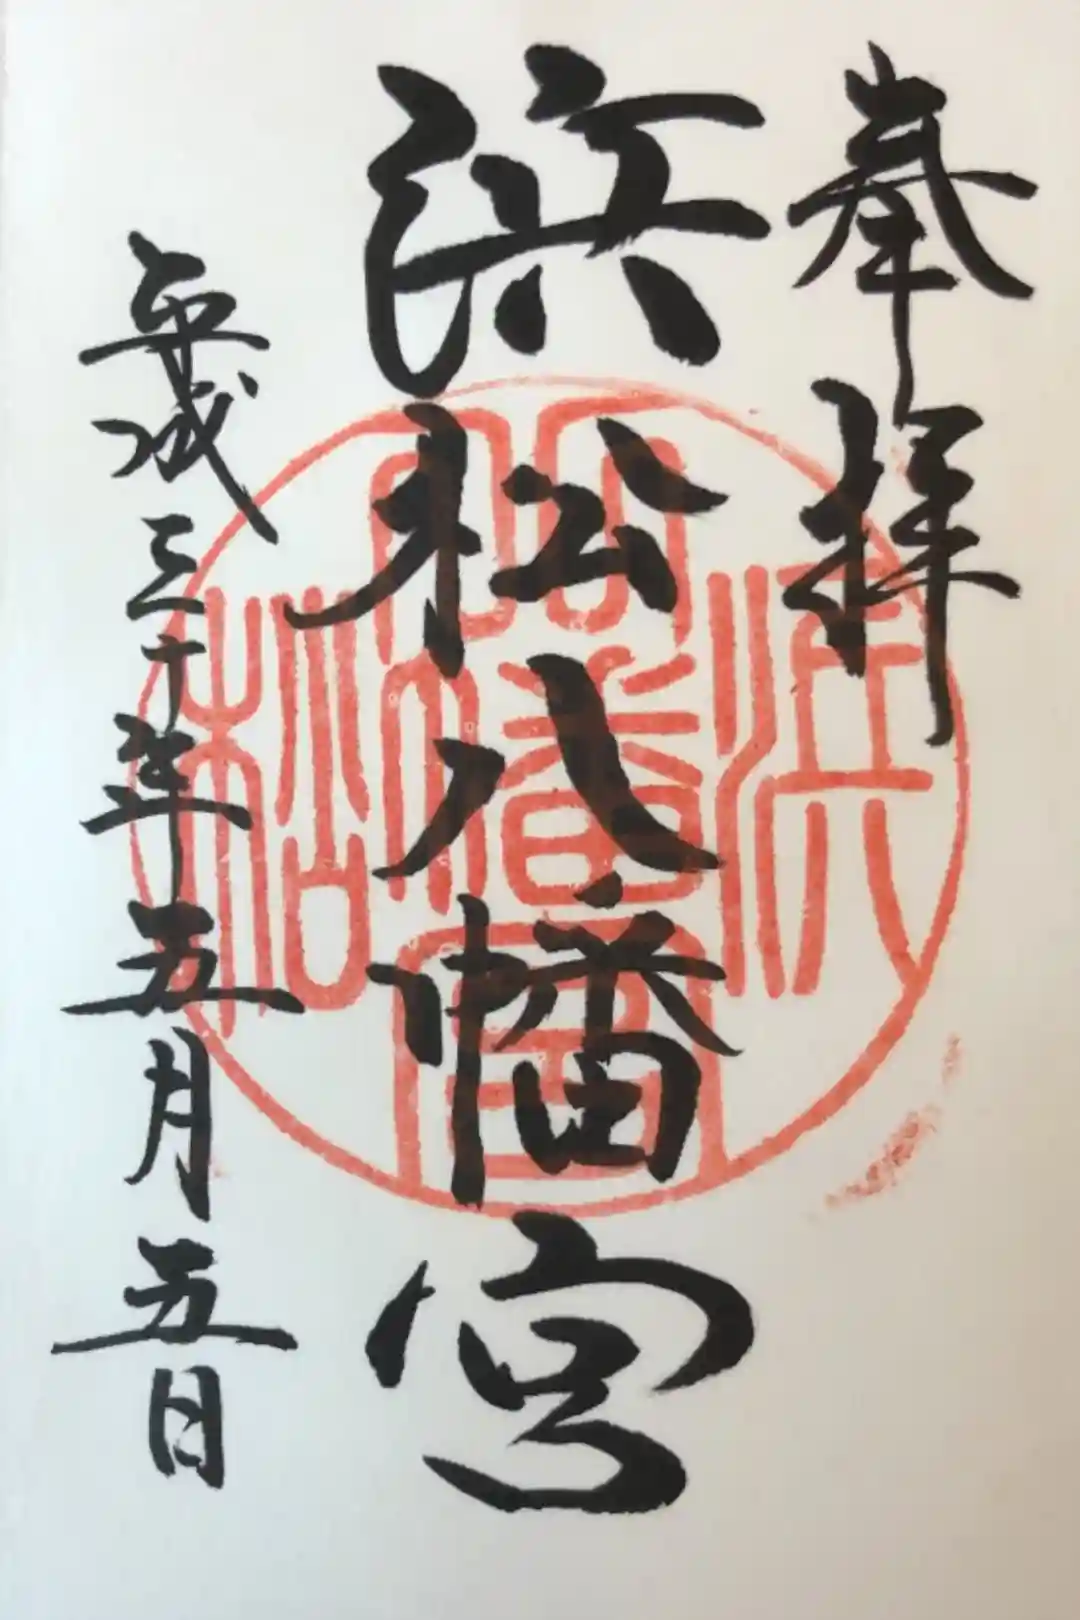 奉拝
浜松八幡宮
平成三十年五月五日
浜松八幡宮